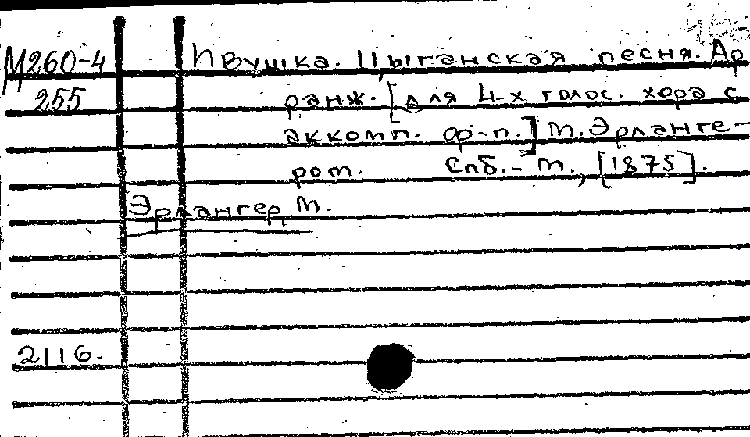 М260-4 Ивушка. Цыганская песня. Ар
255 ранж. [для 4-х голос. хора с
аккомп. ф-п.] М. Эрланге-
ром. Спб.- М., [1875].
Эрлангер М.
2116.